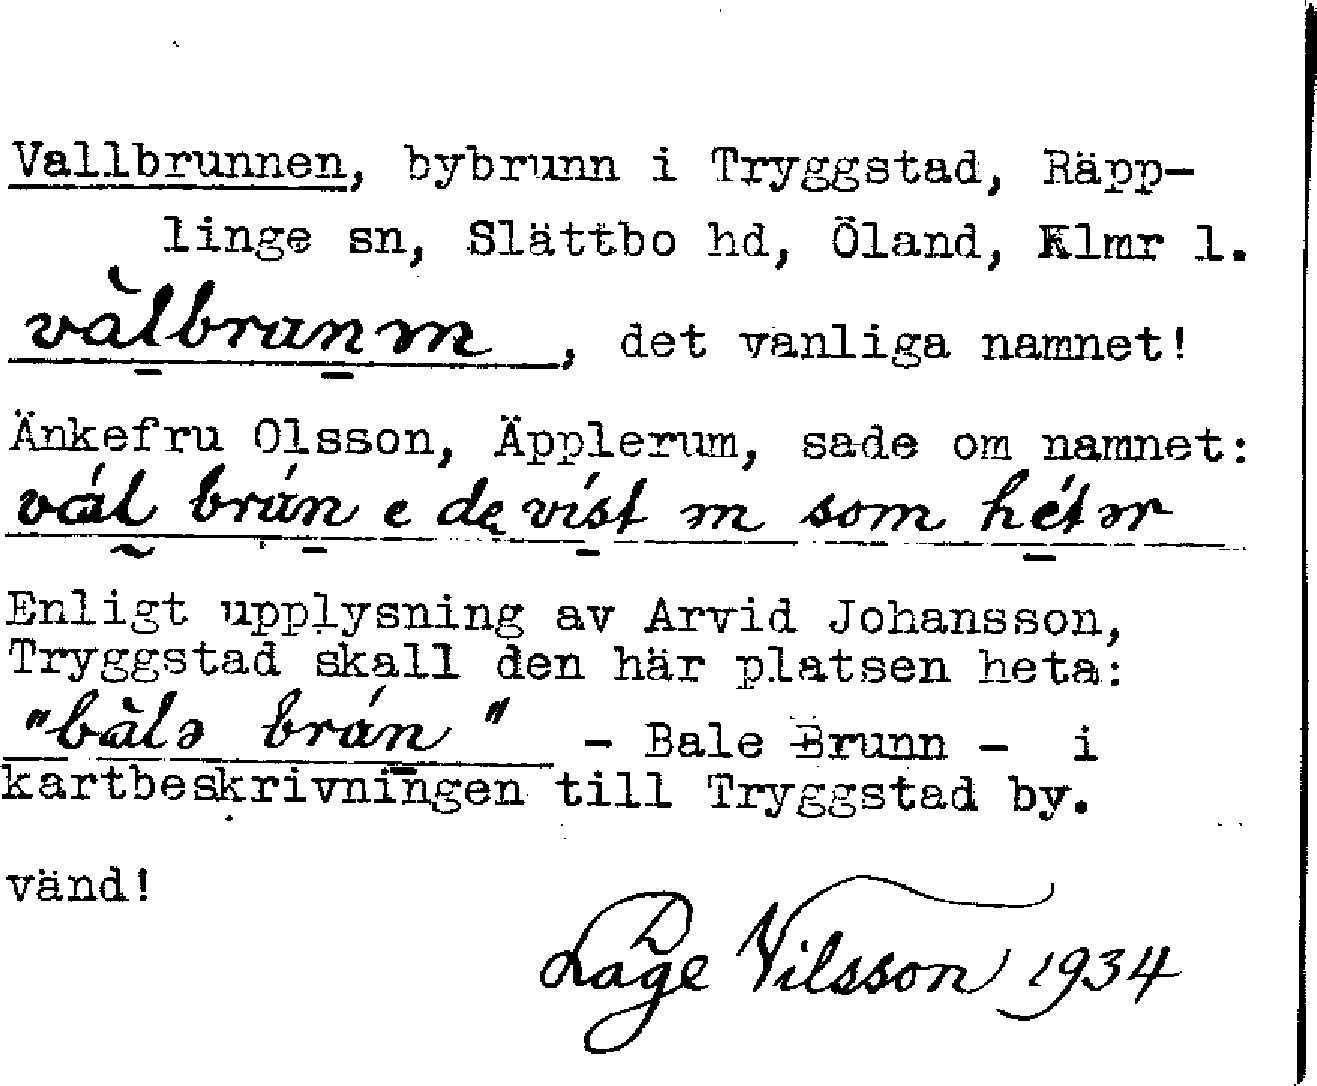 Vallbrunnen, bybrunn i Tryggstad, Räpp-
linge sn, Slättbo hd, Öland, Klmr l.
, det vanliga namnet!
Änkefru Olsson, Äpplerum, sade om namnet:
som
Enligt upplysning av Arvid Johansson,
Tryggstad skall den här platsen heta:
"bàlə brán" - Bale Brunn - i
kartbeskrivningen till Tryggstad by.
vänd!
Lage Nilsson 1934